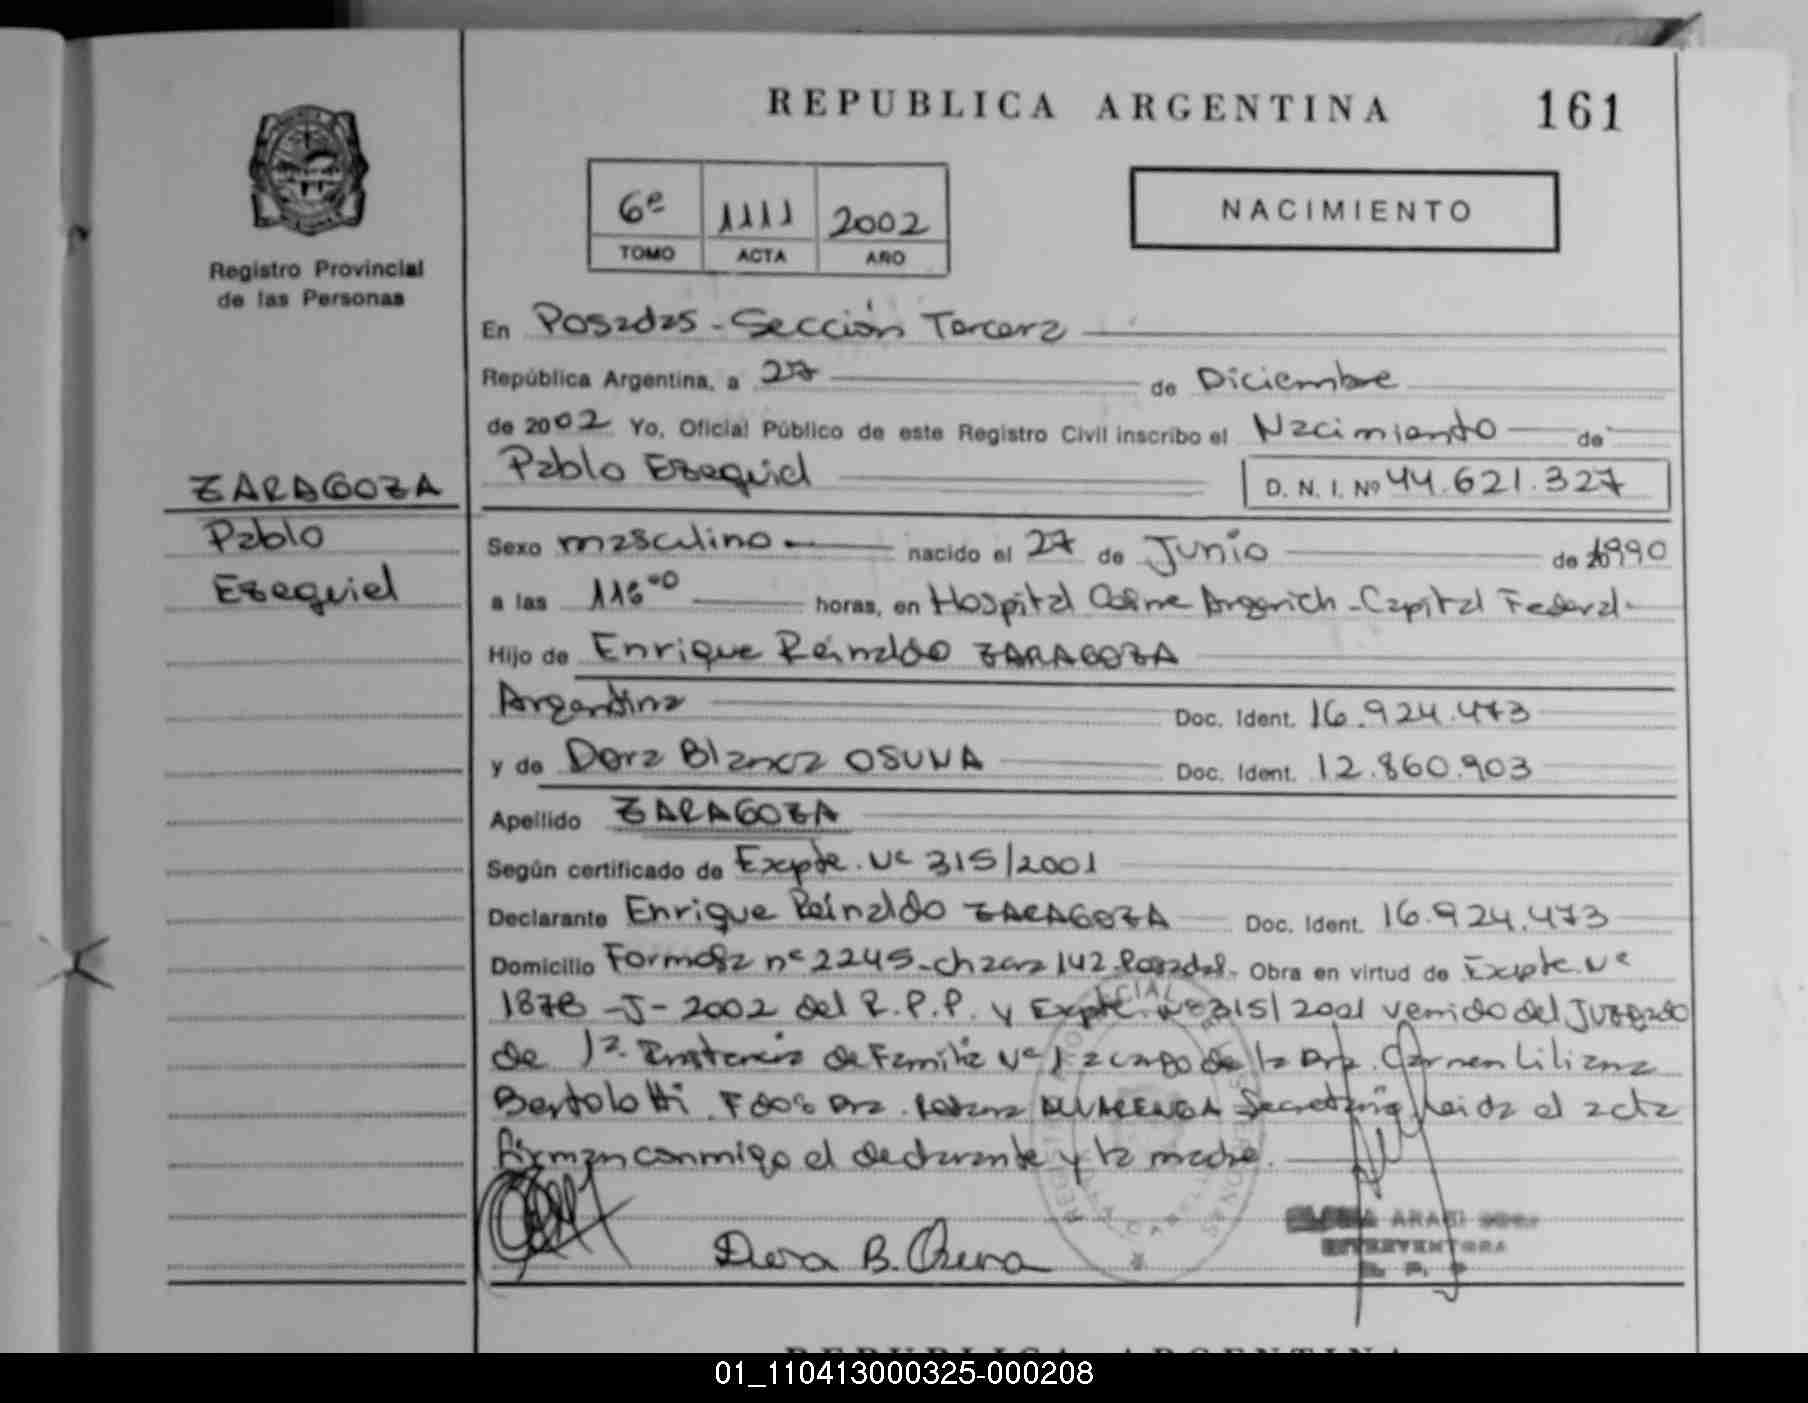 REPUBLICA ARGENTINA
161
6º 1111 2002
TOMO ACTA AÑO
NACIMIENTO
Registro Provincial
de las Personas
En Posadas - Sección Tercera
República Argentina, a 27 de Diciembre
de 2002 Yo, Oficial Público de este Registro Civil inscribo el Nacimiento de
Pablo Ezequiel D. N. I. Nº 44.621.327
ZARAGOZA
Pablo
Ezequiel
Sexo masculino nacido el 27 de Junio de 1990
a las horas, en Hospital Argerich - Capital Federal -
Hijo de Enrique Reinaldo ZARAGOZA
Argentina Doc. Ident. 16.924.473
y de Dora Blanca OSUNA Doc. Ident. 12.860.903
Apellido ZARAGOZA
Según certificado de Expte. Nº 315/2001
Declarante Enrique Reinaldo ZARAGOZA Doc. Ident. 16.924.473
Domicilio Formosa nº 2245 - chacra 142 - Posadas - Obra en virtud de Expte. Nº
1878 - J - 2002 del R. P. P. y Expte. Nº 315/2001 venido del Juzgado
de 1ª Instancia de Familia Nº 1 a cargo de la Dra. Carmen Liliana
Bertolotti. Dra. ALVARENGA Secretaria leida el acta
firman conmigo el declarante y la madre.
Dora B. Osuna
ARASI
INTERVENTORA
R. P. P
REPUBLICA ARGENTINA
01_110413000325-000208